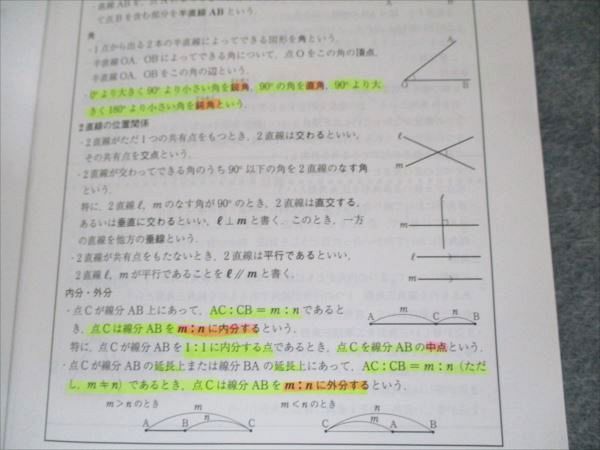 直線AB，点A
て点Bを含む部分を半直線ABという．
角
・1点から出る2本の半直線によってできる図形を角という．
半直線OA，OBによってできる角について，点Oをこの角の頂点，
半直線OA，OBをこの角の辺という．
・0°より大きく90°より小さい角を鋭角，90°の角を直角，90°より大
きく180°より小さい角を鈍角という．
A
O
B
2直線の位置関係
・2直線がただ1つの共有点をもつとき，2直線は交わるといい，
その共有点を交点という．
・2直線が交わってできる角のうち90°以下の角を2直線のなす角
という．
特に，2直線ℓ，mのなす角が90°のとき，2直線は直交する，
あるいは垂直に交わるといい，ℓ⊥mと書く．このとき，一方
の直線を他方の垂線という．
・2直線が共有点をもたないとき，2直線は平行であるといい，
2直線ℓ，mが平行であることをℓ∥mと書く．
ℓ
m
ℓ
m
ℓ
m
内分・外分
・点Cが線分AB上にあって，AC：CB＝m：nであると
き，点Cは線分ABをm：nに内分するという．
特に，点Cが線分ABを1：1に内分する点であるとき，点Cを線分ABの中点という．
m
n
A
C
B
・点Cが線分ABの延長上または線分BAの延長上にあって，AC：CB＝m：n（ただ
し，m≠n）であるとき，点Cは線分ABをm：nに外分するという．
m＞nのとき
m
n
A
B
C
m＜nのとき
n
m
C
A
B